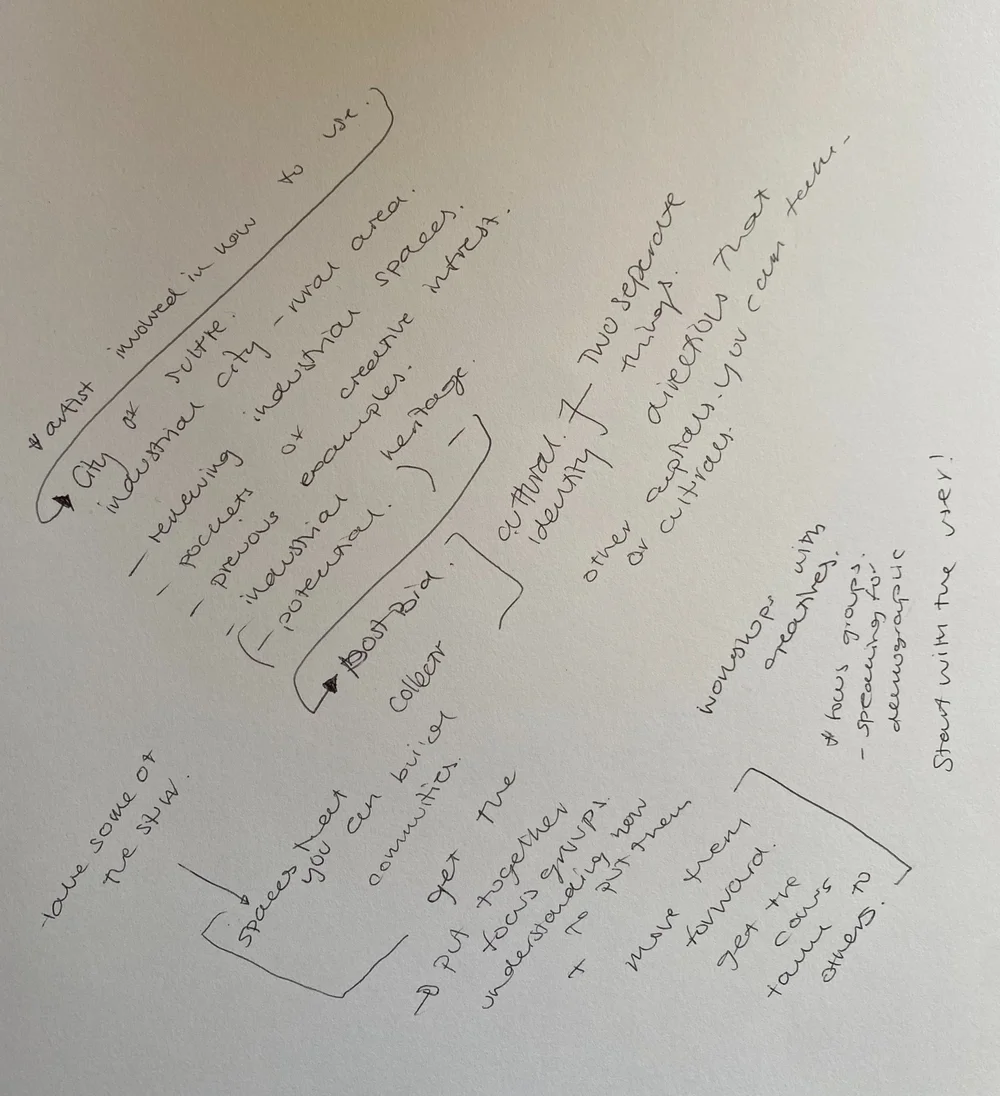 * artist involved in how to use.
City of
industrial city - rural area.
- renewing industrial spaces.
- pockets of creative intrest.
- previous examples.
- industrial heritage
(- potential.) -
Post Bid.
cultural.
Identity
Two separate
things.
other capitals directions that
or culturals. you can
take some of
the
Spaces that
you can build
communities.
collect
get the
put together
focus groups.
understanding how
to put them
+ move them
forward.
get the
cov's
talk to
others.
workshops with
creatives.
* focus groups.
- speaking for
demographic
Start with the user!